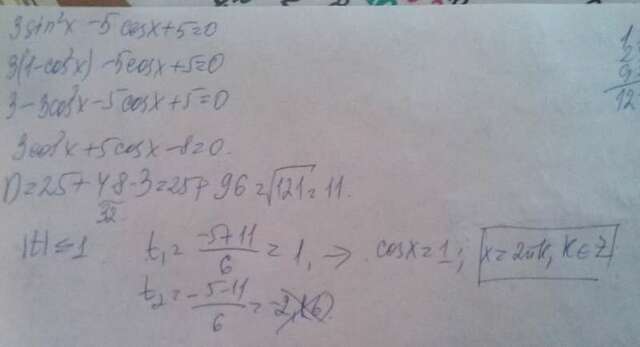 3sin²x - 5cosx + 5 = 0
3(1-cos²x) - 5cosx + 5 = 0
3 - 3cos²x - 5cosx + 5 = 0
3cos²x + 5cosx - 8 = 0.
D = 25 + 4·8·3 = 25 + 96 = √121 = 11.
32
|t| ≤ 1 t₁ = (-5+11)/6 = 1, → cosx = 1; x = 2πk, k ∈ Z
t₂ = (-5-11)/6 =
1
2
9
12